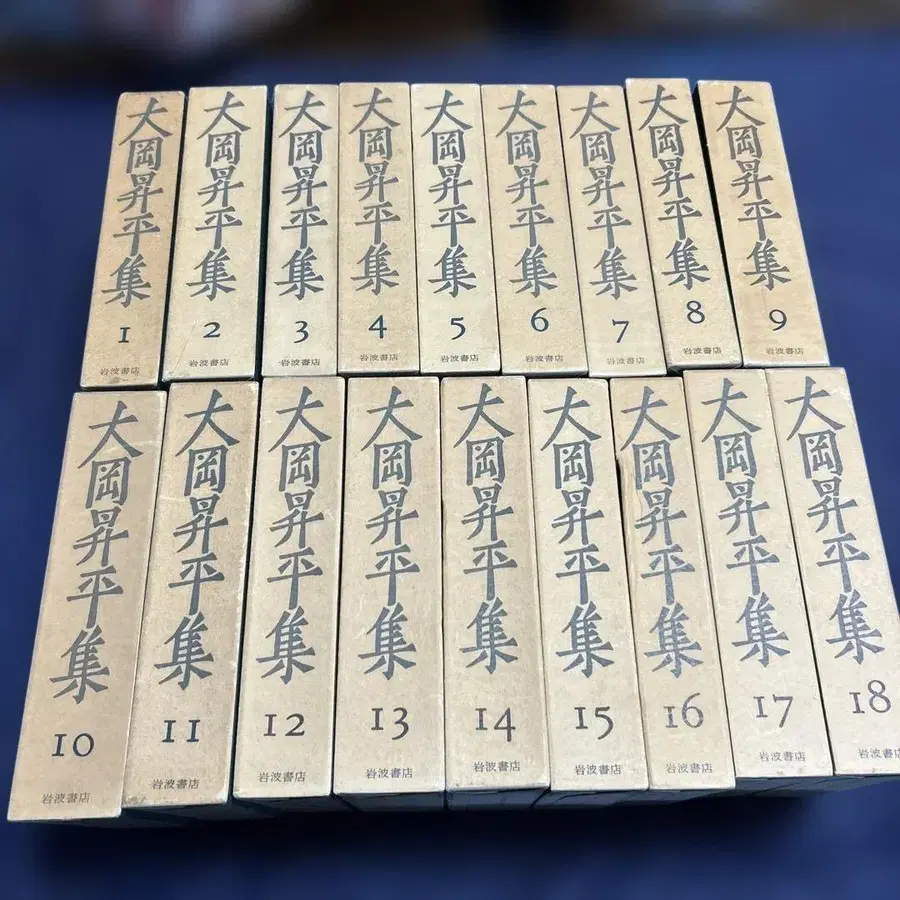 大岡昇平集
1
岩波書店
大岡昇平集
2
岩波書店
大岡昇平集
3
岩波書店
大岡昇平集
4
岩波書店
大岡昇平集
5
岩波書店
大岡昇平集
6
岩波書店
大岡昇平集
7
岩波書店
大岡昇平集
8
岩波書店
大岡昇平集
9
岩波書店
大岡昇平集
10
岩波書店
大岡昇平集
11
岩波書店
大岡昇平集
12
岩波書店
大岡昇平集
13
岩波書店
大岡昇平集
14
岩波書店
大岡昇平集
15
岩波書店
大岡昇平集
16
岩波書店
大岡昇平集
17
岩波書店
大岡昇平集
18
岩波書店